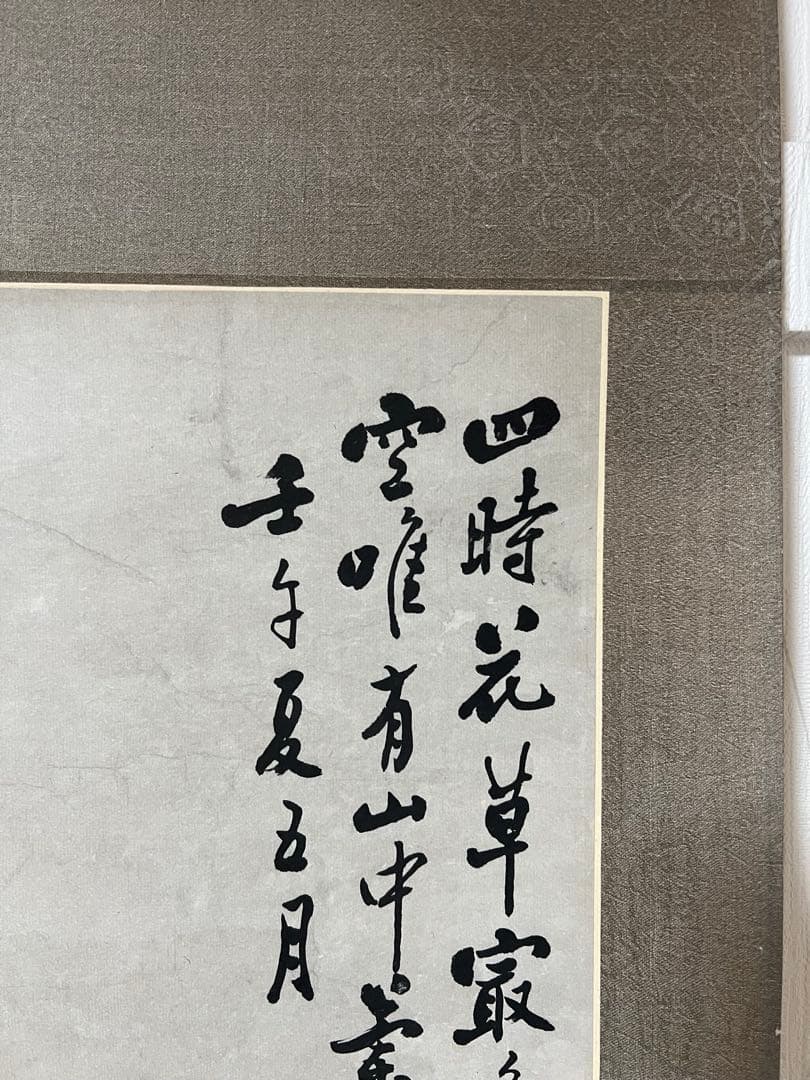 四時花草寂
空唯有山中
壬午夏五月